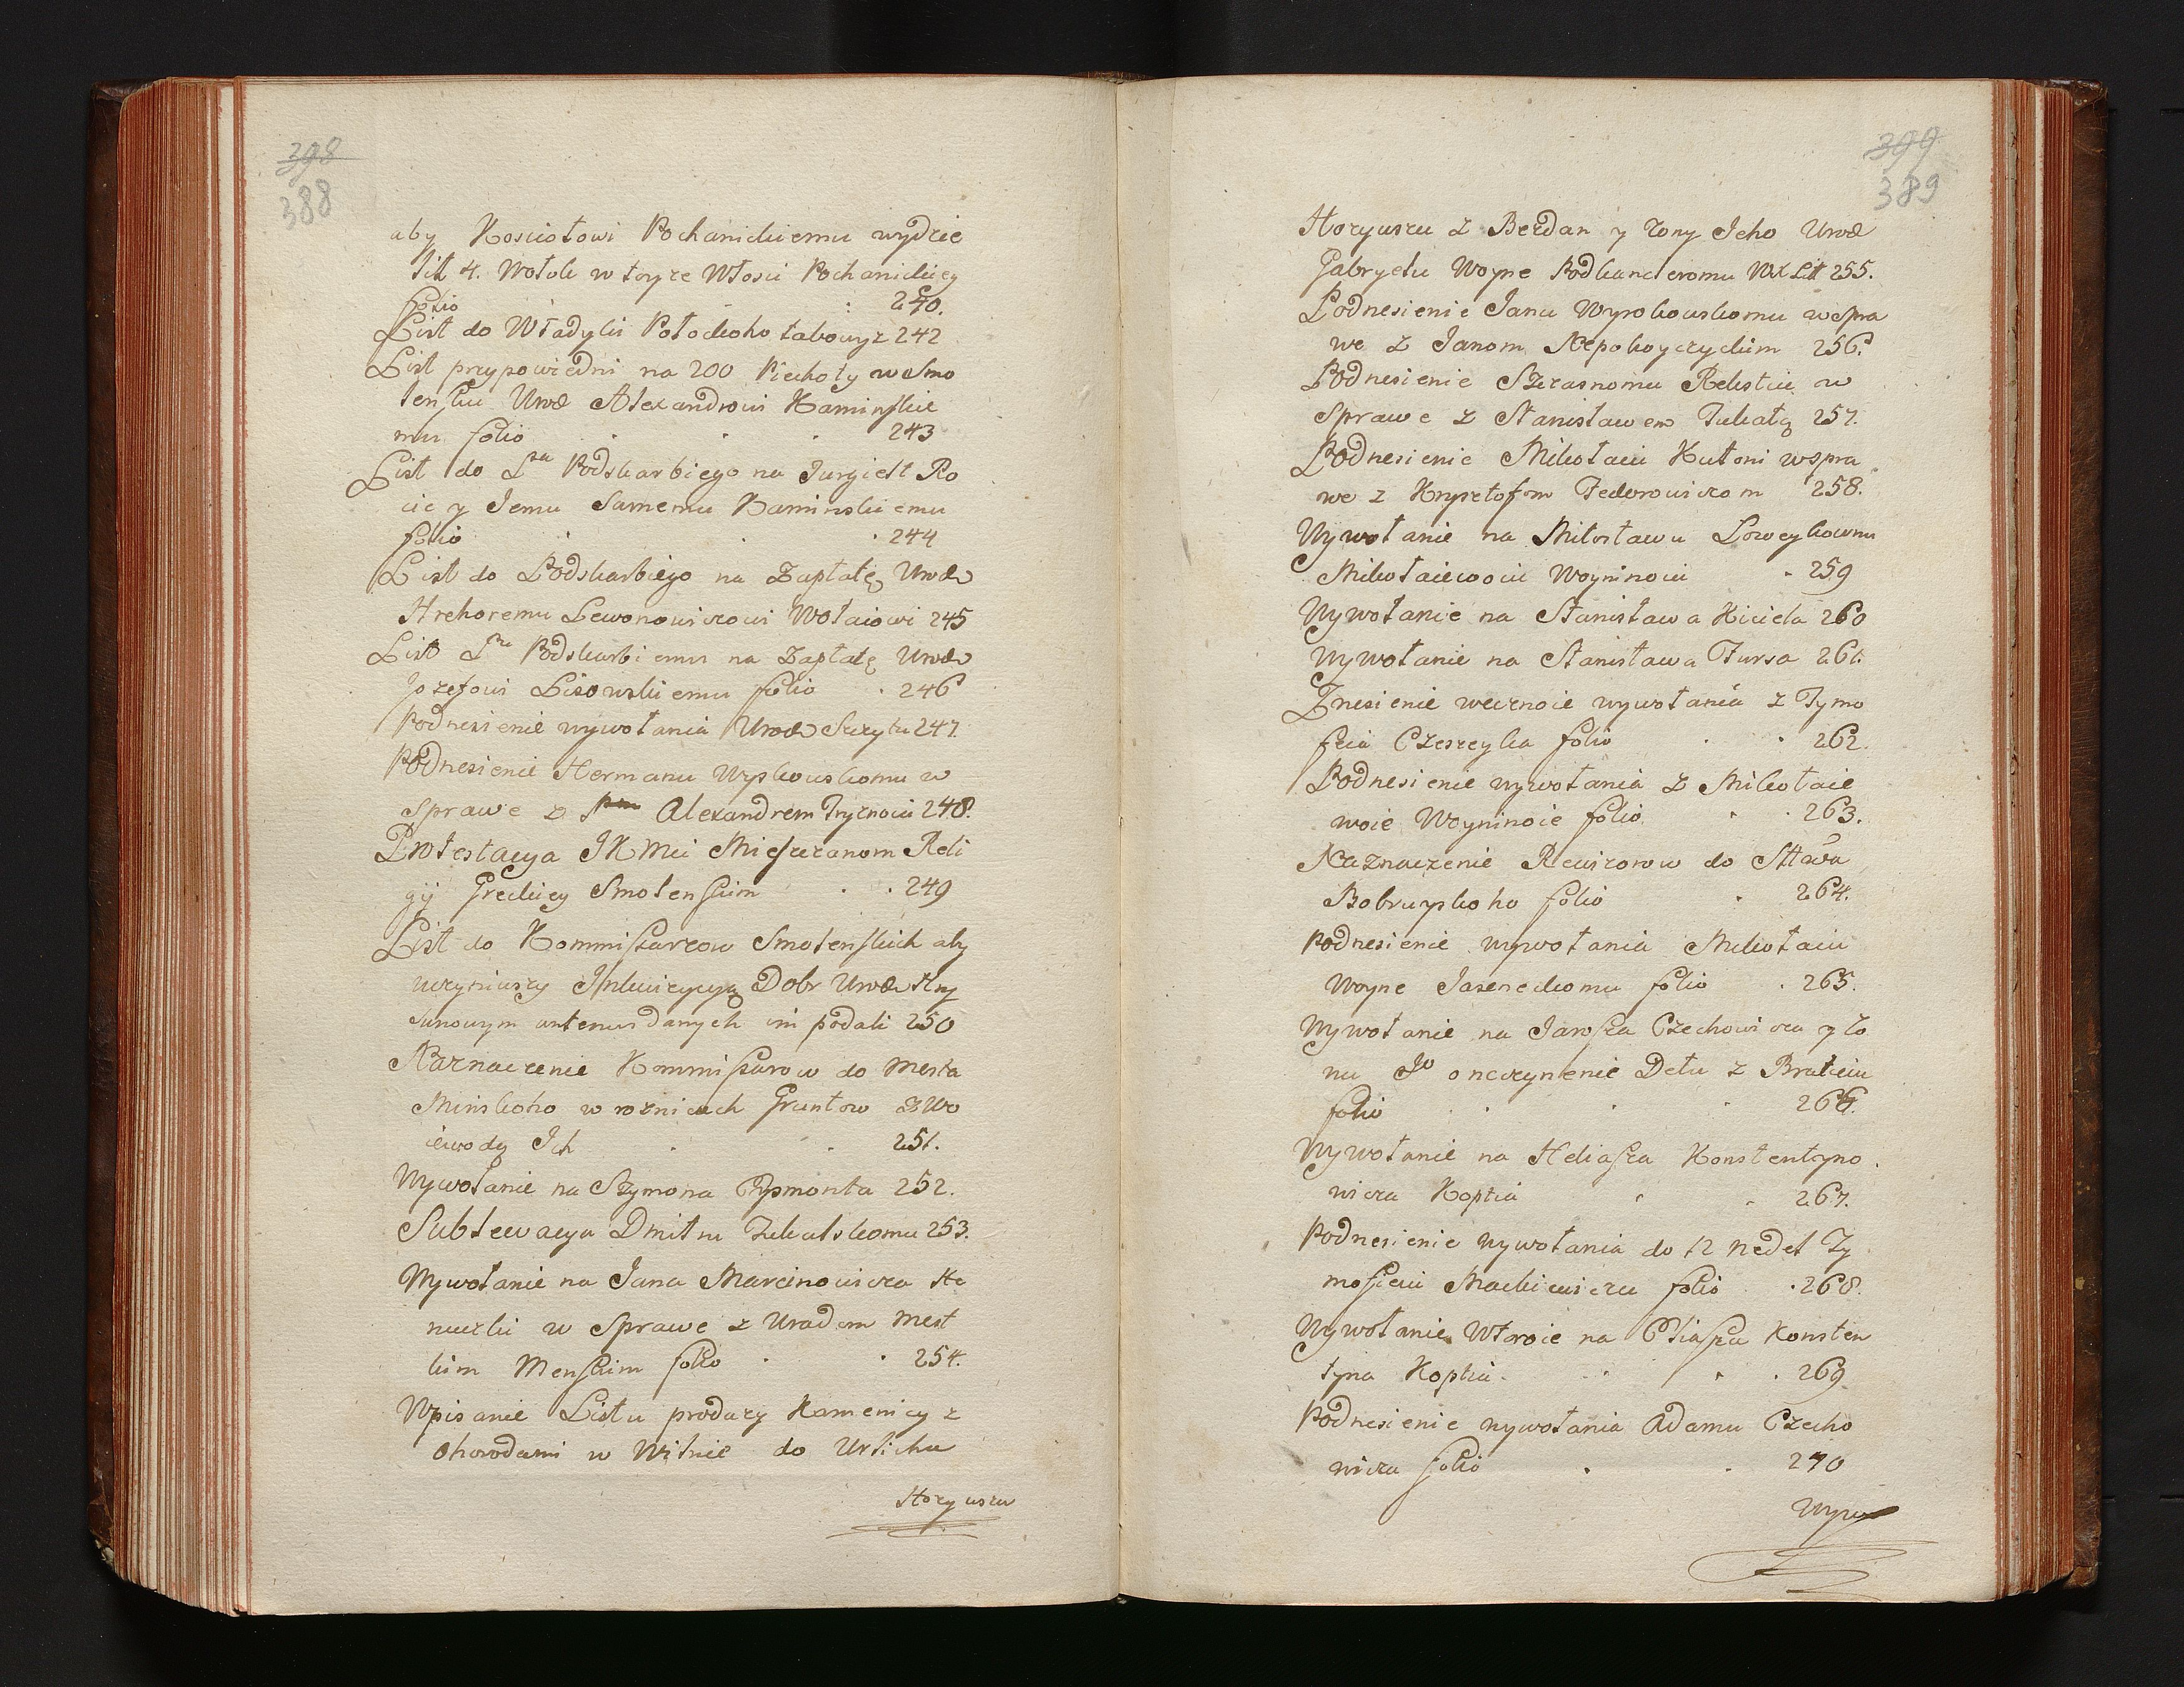 398
388
aby Kosciołowi Pochanickiemu wydzie
lił 4. Wołok w teyze Włosci Pochanickiey
folio 240.
List do Władyki Połockoho takowyz 242
List przypowiedni na 200 Piechoty w Smo
lensku Urod Alexandrowi Kaminskie
mu folio 243
List do Pna Podskarbiego na Jurgielt Ro
czny Jemu Samemu Kaminskiemu
folio 244
List do Podskarbiego na Zapłatę Urod
Hrehoremu Lewonowiczowi Wołaiowi 245
List Pnu Podskarbiemu na Zapłatę Urod
Jozefowi Lisowskiemu folio 246
Podnesienie wywołania Urod Szczytu 247.
Podnesienie Hermanu Wyskowskomu w
Sprawe z Alexandrem Tryznoiu 248.
Protestacya JKMci Mieszczanom Reli
gij Greckiey Smolenskim 249
List do Kommissarzow Smolenskich aby
uczyniwszy Inkwizycyą Dobr Urod
danych im podali 250
Naznaczenie Kommissarow do Mesta
Minskoho w roznicach Gruntow z Wo
iewody Ich 251.
Wywołanie na Szymona Pysmonta 252.
Sublewacya Dmitru Zukatskomu 253.
Wywołanie na Jana Marcinowicza
w Sprawe z Uradom Mest
kim Menskim folio 254.
Wpisanie Listu prodazy Kamenicy z
Ohorodami w Wilnie do Urlicha
Hozyusza
399
389
Hozyuszu z Bezdan y Zony Jeho Urod
Gabryelu Woyne Podkancleromu WXLit 255.
Podnesienie Janu Wyrokowskomu w Spra
we z Janom Nepokoyczyckim 256.
Podnesienie Szczasnomu w
Sprawe z Stanisławem Tukałą 257.
Podnesienie Mikołaiu Kutoni w Spra
we z Krysztofom Fedorowiczom 258.
Wywołanie na Miłosławu Lowcykownu
Mikołaiewoiu Woyninoiu 259
Wywołanie na Stanisława Kiciela 260
Wywołanie na Stanisława Fursa 261.
Znesienie wecznoie wywołania z Tymo
feia Czeszeyka folio 262.
Podnesienie wywołania z Mikołaie
woie Woyninoie folio 263.
Naznaczenie Rewizorow do Sttwa
Bobruyskoho folio 264.
Podnesienie wywołania Mikołaiu
Woyne Jaseneckomu folio 265.
Wywołanie na Jarosza Czechowicza y Zo
nu Jo o neczynenie Dełu z Bratieiu
folio 266.
Wywołanie na Heliasza Konstentyno
wicza Koptia 267.
Podnesienie wywołania do 12 nedel Ty
mofieiu Mackiewiczu folio 268.
Wywołanie Wtoroie na Eliasza Konsten
tyna Koptia 269
Podnesienie wywołania Adamu Czecho
wiczu folio 270
Wywo